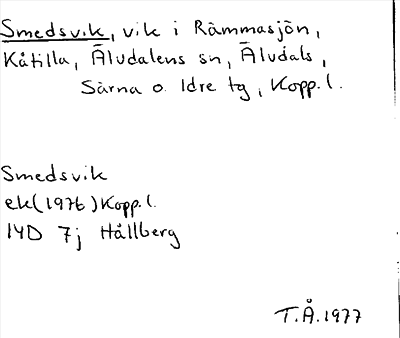 Smedsvik, vik i Rämmasjön,
Kåtilla, Äludalens sn, Äludals,
Särna o. Idre tg, Kopp.l.
Smedsvik
ek(1976)Kopp.l.
14D 7j Hållberg
T.Å.1977